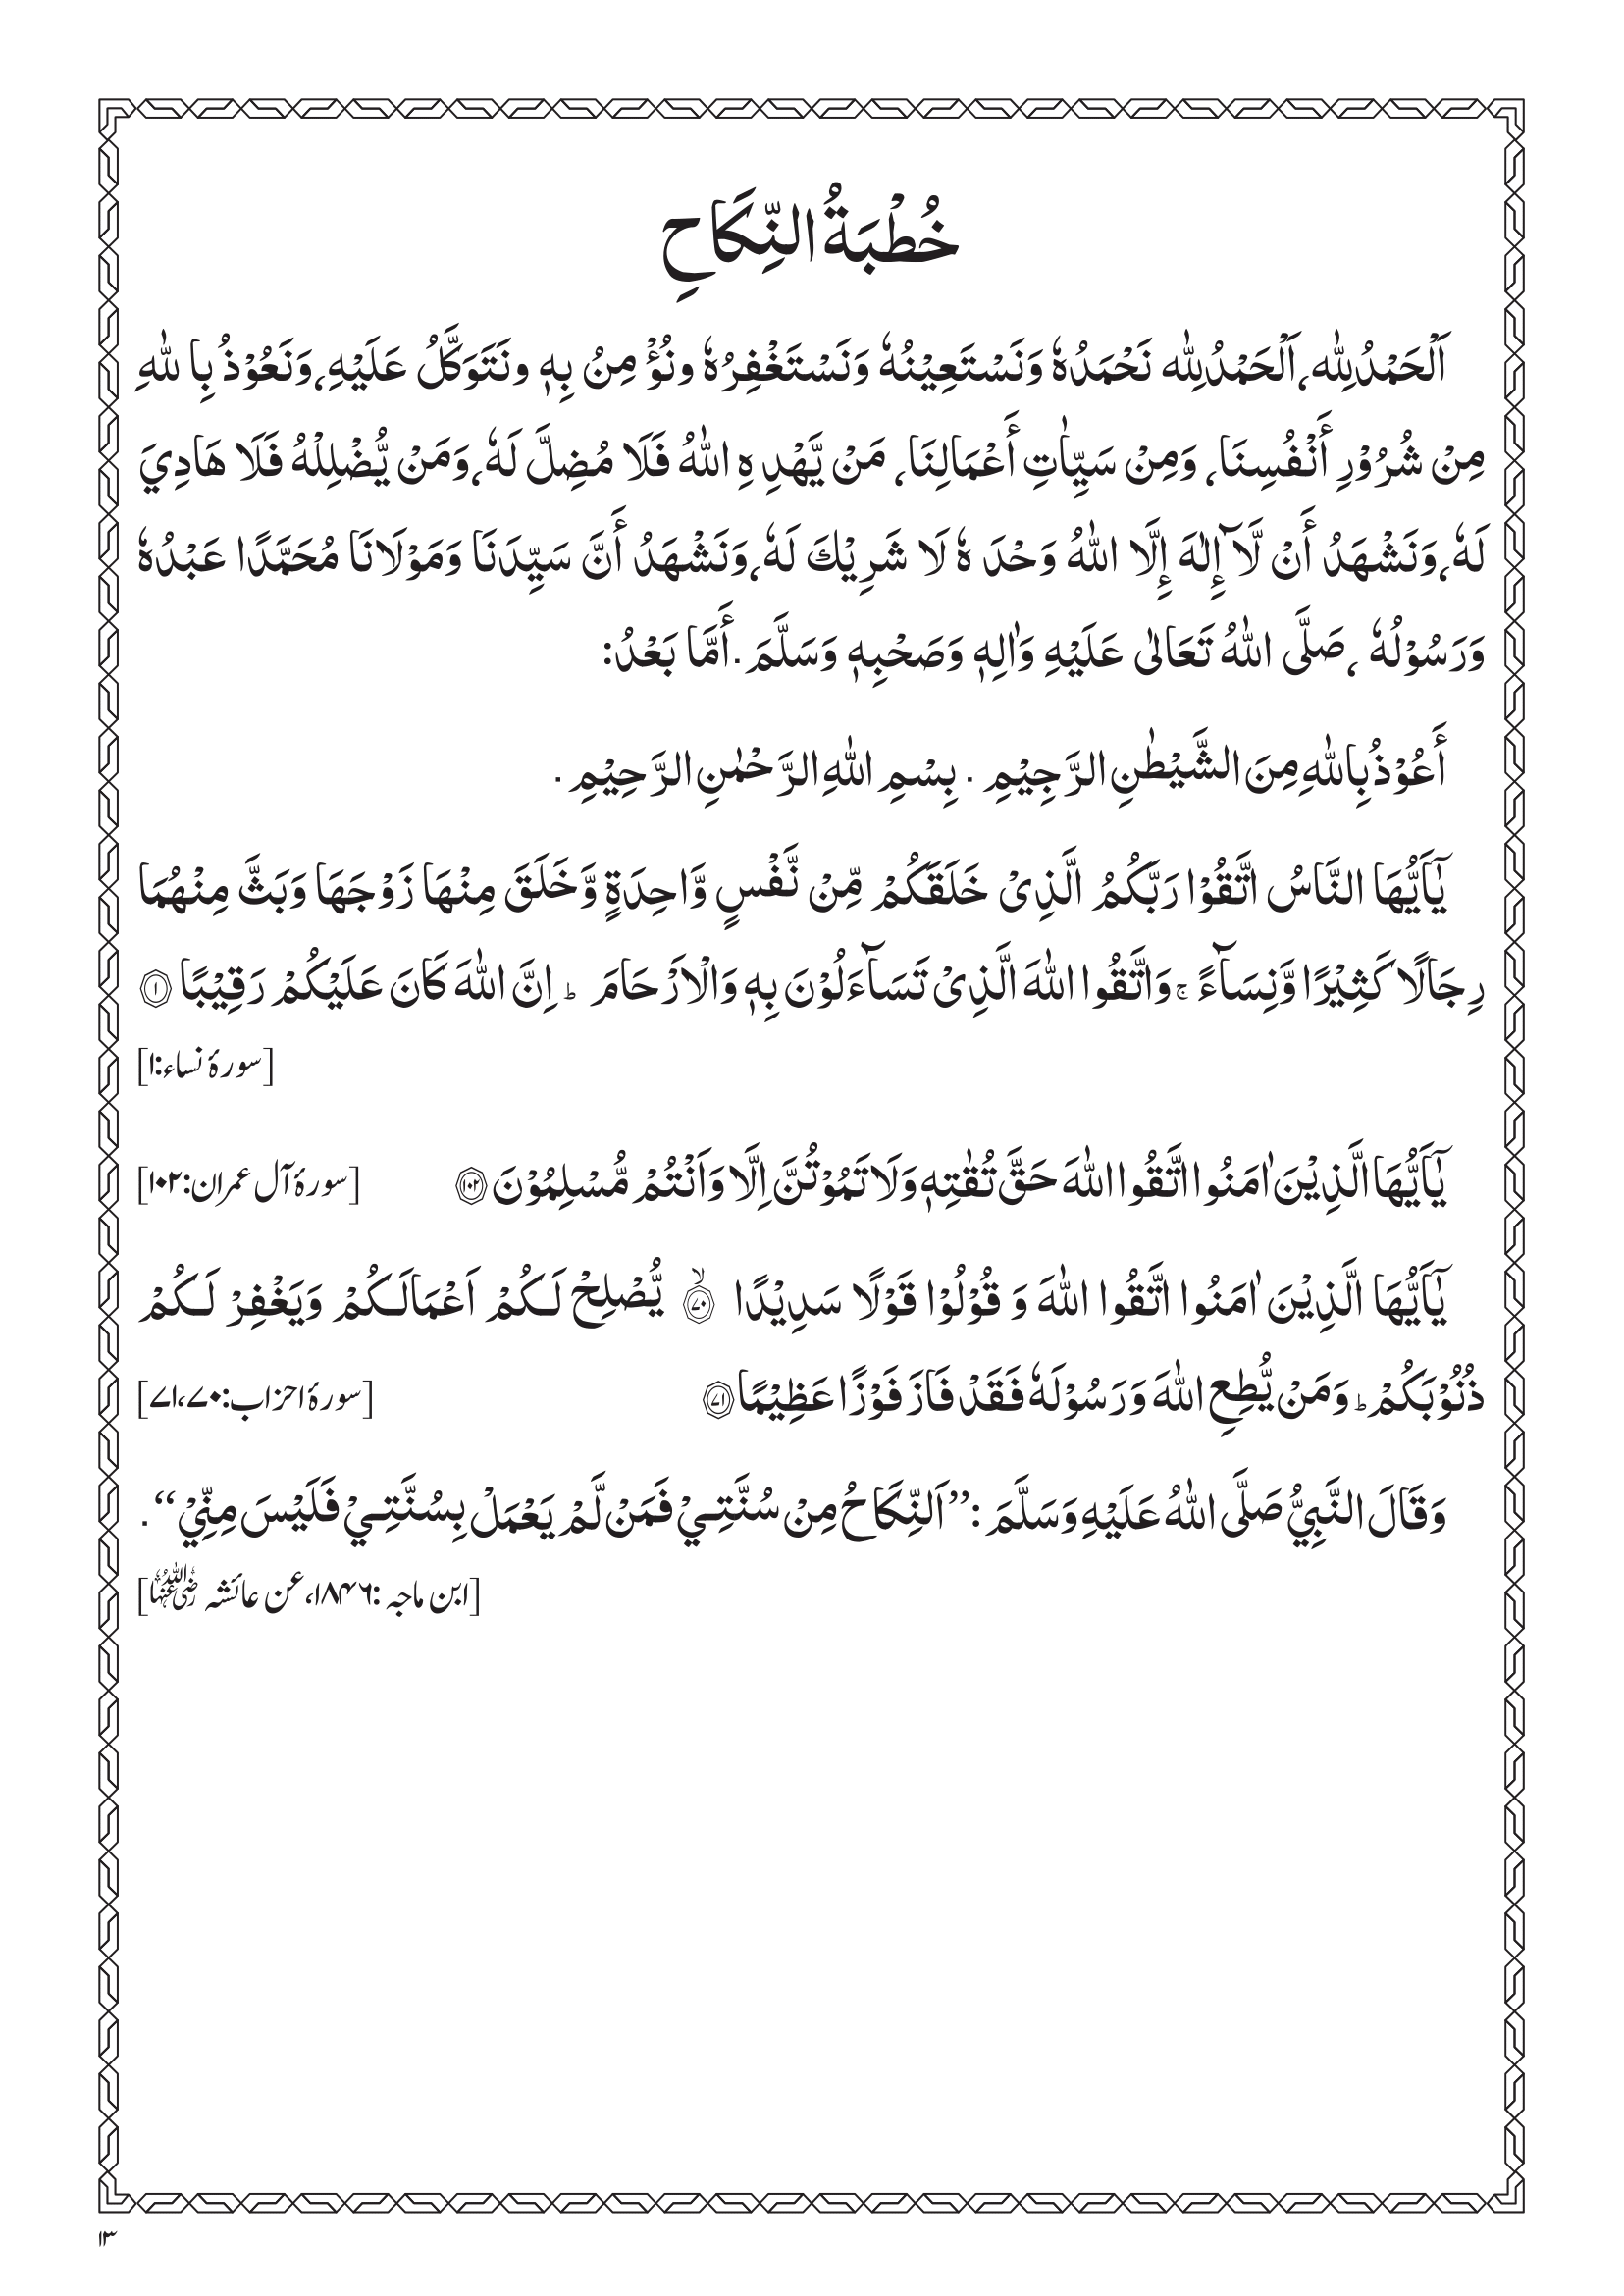 خُطْبَةُ النِّكَاحِ
اَلْحَمْدُلِلّٰهِ، اَلْحَمْدُلِلّٰهِ نَحْمَدُهٗ وَنَسْتَعِيْنُهٗ وَنَسْتَغْفِرُهٗ ونُؤْ مِنُ بِهٖ ونَتَوَكَّلُ عَلَيْهِ، وَنَعُوْذُ بِا للّٰهِ
مِنْ شُرُوْرِ أَنْفُسِنَا، وَمِنْ سَيِّاٰتِ أَعْمَالِنَا، مَنْ يَّهْدِ هِ اللّٰهُ فَلَا مُضِلَّ لَهٗ، وَمَنْ يُّضْلِلْهُ فَلَا هَادِيَ
لَهٗ، وَنَشْهَدُ أَنْ لَّآ إِلٰهَ إِلَّا اللّٰهُ وَحْدَ هٗ لَا شَرِيْكَ لَهٗ، وَنَشْهَدُ أَنَّ سَيِّدَنَا وَمَوْلَانَا مُحَمَّدًا عَبْدُهٗ
وَرَسُوْلُهٗ ، صَلَّى اللّٰهُ تَعَالٰى عَلَيْهِ وَاٰلِهٖ وَصَحْبِهٖ وَسَلَّمَ. أَمَّا بَعْدُ:
أَعُوْذُ بِاللّٰهِ مِنَ الشَّيْطٰنِ الرَّجِيْمِ . بِسْمِ اللّٰهِ الرَّحْمٰنِ الرَّحِيْمِ .
يٰٓاَيُّهَا النَّاسُ اتَّقُوْا رَبَّكُمُ الَّذِىْ خَلَقَكُمْ مِّنْ نَّفْسٍ وَّاحِدَةٍ وَّخَلَقَ مِنْهَا زَوْجَهَا وَبَثَّ مِنْهُمَا
رِجَالًا كَثِيْرًا وَّنِسَآءً ۚ وَاتَّقُوا اللّٰهَ الَّذِىْ تَسَآءَلُوْنَ بِهٖ وَالْاَرْحَامَ ؕ اِنَّ اللّٰهَ كَانَ عَلَيْكُمْ رَقِيْبًا ۝۱
[سورۂ نساء:۱]
يٰٓاَيُّهَا الَّذِيْنَ اٰمَنُوا اتَّقُوا اللّٰهَ حَقَّ تُقٰتِهٖ وَلَا تَمُوْتُنَّ اِلَّا وَاَنْتُمْ مُّسْلِمُوْنَ ۝۱۰۲ [سورۂ آل عمران:۱۰۲]
يٰٓاَيُّهَا الَّذِيْنَ اٰمَنُوا اتَّقُوا اللّٰهَ وَ قُوْلُوْا قَوْلًا سَدِيْدًا ۝۷۰ۙ يُّصْلِحْ لَـكُمْ اَعْمَالَـكُمْ وَيَغْفِرْ لَـكُمْ
ذُنُوْبَكُمْ ؕ وَمَنْ يُّطِعِ اللّٰهَ وَرَسُوْلَهٗ فَقَدْ فَازَ فَوْزًا عَظِيْمًا ۝۷۱ [سورۂ احزاب:۷۰،۷۱]
وَقَالَ النَّبِيُّ صَلَّى اللّٰهُ عَلَيْهِ وَسَلَّمَ :”اَلنِّكَاحُ مِنْ سُنَّتِـيْ فَمَنْ لَّمْ يَعْمَلْ بِسُنَّتِـيْ فَلَيْسَ مِنِّيْ“.
[ابن ماجہ :۱۸۴۶، عن عائشہ رضی اللہ عنہا]
۱۳